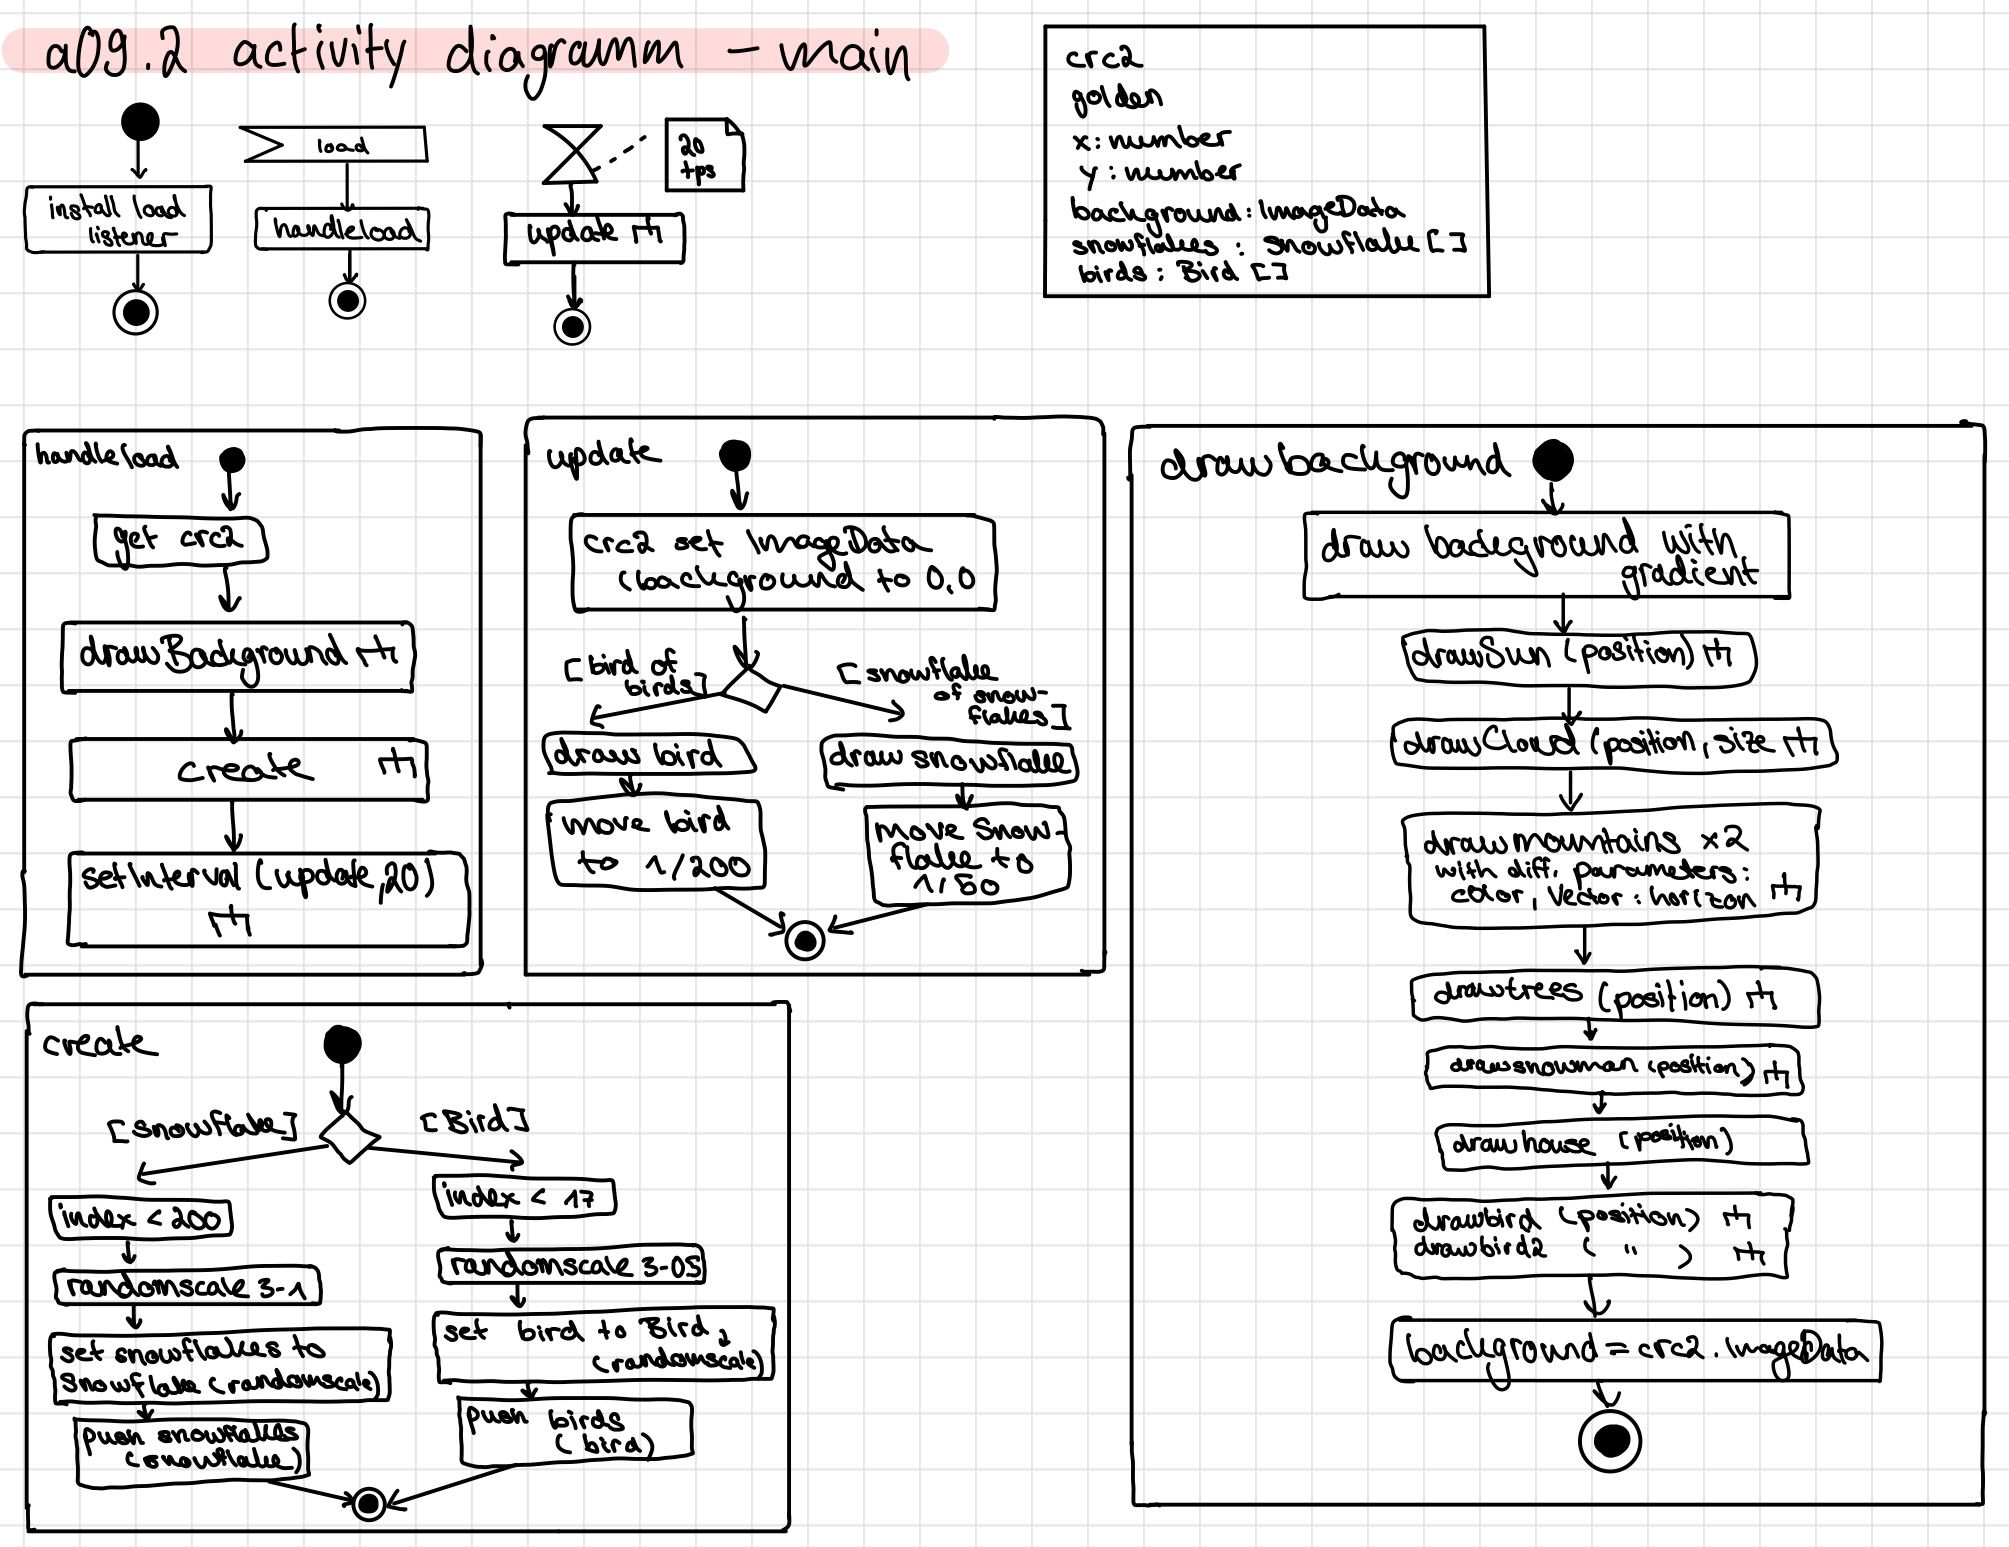 a09.2 activity diagramm - main
install load
listener
load
handleload
20
tps
update
crc2
golden
x: number
y: number
background: ImageData
snowflakes : Snowflake []
birds : Bird []
handleload
get crc2
drawBackground
create
setInterval (update,20)
update
crc2 set ImageData
(background to 0,0
[bird of
birds]
[snowflake
of snow-
flakes]
draw bird
draw snowflake
move bird
to 1/200
move Snow-
flake to
1/50
drawbackground
draw background with
gradient
drawSun (position)
drawCloud (position, size
drawmountains x2
with diff. parameters:
color, Vector: horizon
drawtrees (position)
drawsnowman (position)
drawhouse (position)
drawbird (position)
drawbird2 ( " )
background = crc2.ImageData
create
[snowflake]
[Bird]
index < 200
randomscale 3-1
set snowflakes to
Snowflake (randomscale)
push snowflakes
(snowflake)
index < 17
randomscale 3-05
set bird to Bird
(randomscale)
push birds
(bird)